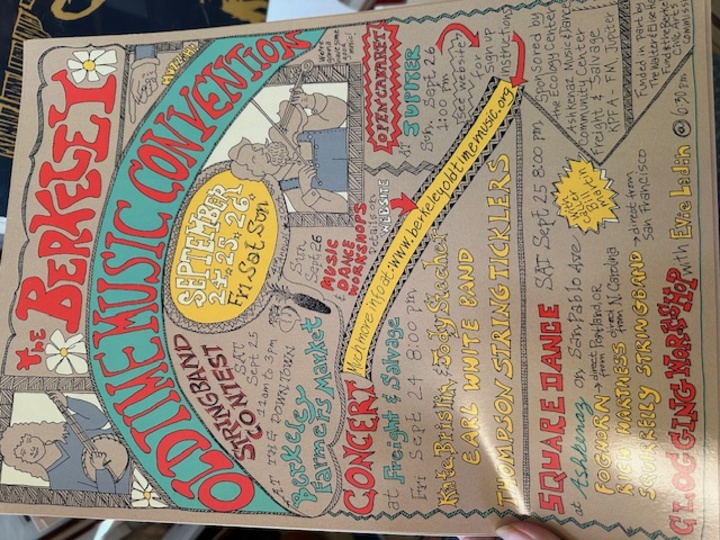 the BERKELEY
OLDTIME MUSIC CONVENTION
SEPTEMBER
24TH 25TH 26TH
Fri Sat Sun
STRINGBAND
CONTEST
SAT
Sept 25
11am to 3pm
AT THE DOWNTOWN
Berkeley
Farmers Market
Sun
Sept 26
MUSIC
DANCE
WORKSHOPS
details on
WEBSITE
OPEN CABARET
AT JUPITER
Sun, Sept 26
1:00 pm
(see website)
for
sign up
instructions
Much more info at: www.berkeleyoldtimemusic.org
Sponsored by
the Ecology Center
Ashkenaz Music & Dance
Community Center
Freight & Salvage
KPFA - FM Jupiter
Funded in part by
Civic Arts
CONCERT
at Freight & Salvage
Fri Sept 24 8:00 pm
Kate Brislin & Jody Stecher
EARL WHITE BAND
THOMPSON STRING TICKLERS
SQUARE DANCE SAT Sept 25 8:00 pm
at Ashkenaz on San Pablo Ave
FOGHORN → direct from Portland OR
RICH HARTNESS direct from N. Carolina
SQUIRRELLY STRINGBAND → direct from San Francisco
with
caller
Bill
Martin
CLOGGING WORKSHOP with Evie Ladin @ 6:30 pm